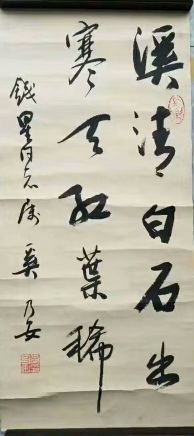 溪清白石出
寒天红葉稀
錢星同志属 奚乃安